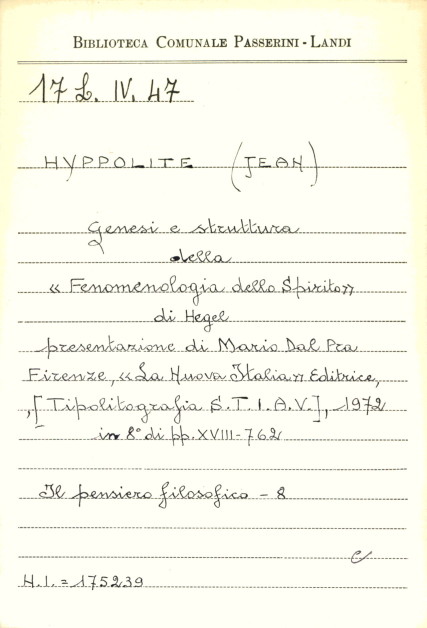 BIBLIOTECA COMUNALE PASSERINI - LANDI
17 L. IV. 47
HYPPOLITE (JEAN)
Genesi e struttura
della
« Fenomenologia dello Spirito»
di Hegel
presentazione di Mario Dal Pra
Firenze, «La Nuova Italia» Editrice,
, [Tipolitografia S.T.I.A.V.], 1972
in 8° di pp. XVIII-762
Il pensiero filosofico - 8
e
N.I. = 175239